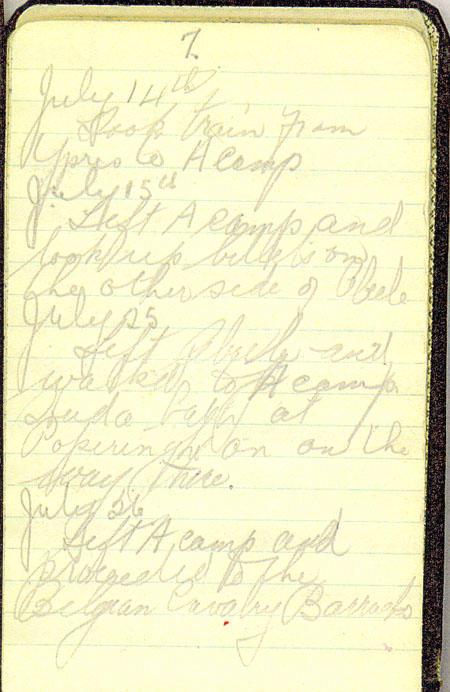 7.
July 14th
Took train from
Ypres to A camp
July 15th
Left A camp and
took up billets on
the other side of Abeele
July 25
Left Abeele and
walked to A camp
had a bath at
Poperinghe on the
way there.
July 26
Left A camp and
proceeded to the
Belgian Cavalry Barracks